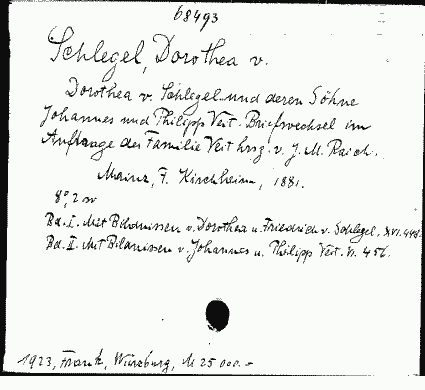 68493
Schlegel, Dorothea v.
Dorothea v. Schlegel und deren Söhne
Johannes und Philipp Veit. Briefwechsel im
Auftrage der Familie Veit hrsg. v. J. M. Raich.
Mainz, F. Kirchheim, 1881.
8°, 2
Bd. I. Mit Bildnissen v. Dorothea u. Friedrich v. Schlegel.
Bd. II. Mit Bildnissen v. Johannes u. Philipp Veit. VI. 456.
1923, Frank, Würzburg, M 25 000.-